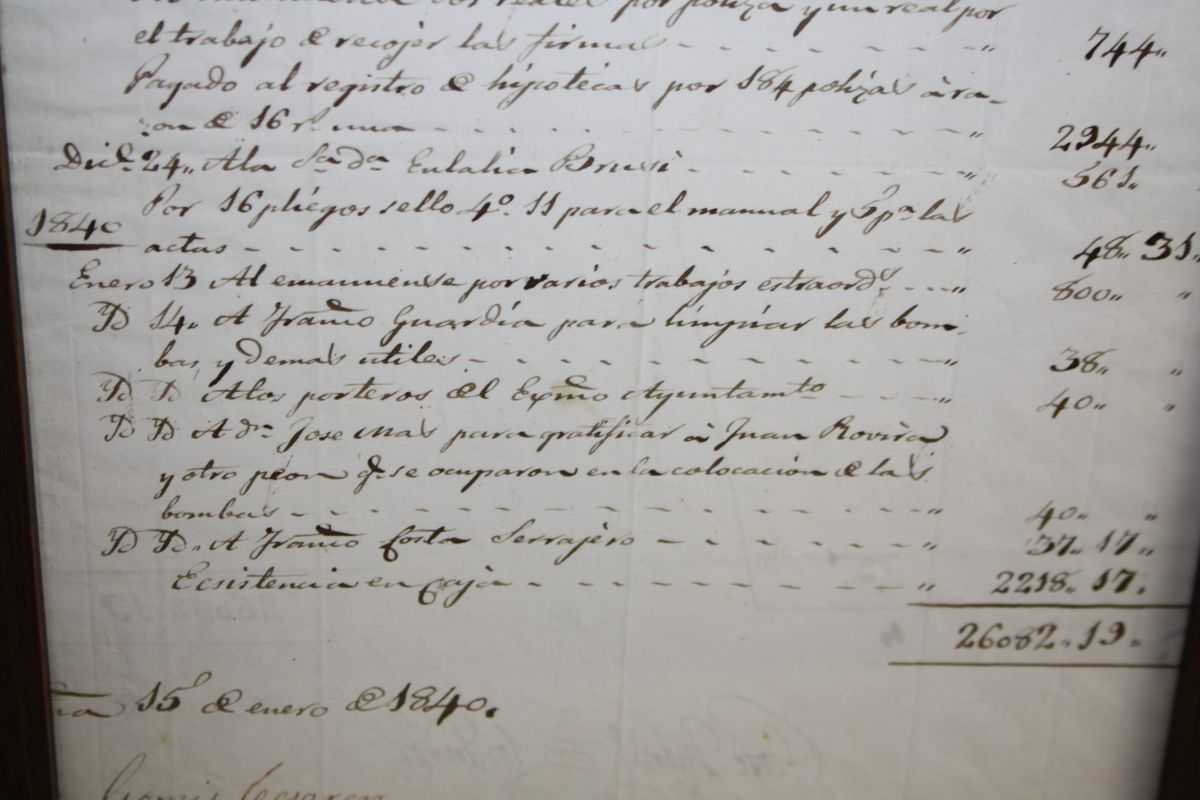 dos reales por poliza y un real por
el trabajo de recojer las firmas „ 744„
Pagado al registro de hipotecas por 184 polizas à ra-
zon de 16 r.ˢ una „ 2944„
Dic.ᵉ 24„ A la S.ʳᵃ d.ᵃ Eulalia Brusi „ 561„
Por 16 pliegos sello 4.º 11 para el manual y 5 p.ª las
1840
actas „ 48„ 31„
Enero 13 Al emanuense por varios trabajos estraord.ˢ „ 800„ „
ID 14„ A Fran.ᶜᵒ Guardia para limpiar las bom-
bas, y demas utiles „ 38„ „
ID ID A los porteros del Exᵐᵒ Ayuntamᵗᵒ „ 40„ „
ID ID A dⁿ Jose Mas para gratificar à Juan Rovira
y otro peon q.ᵉ se ocuparon en la colocacion de las
bombas „ 40„ „
ID ID„ A Fran.ᶜᵒ Costa Serrajero „ 37„ 17„
Ecsistencia en caja „ 2218„ 17„
26082„ 19„
15 de enero de 1840.